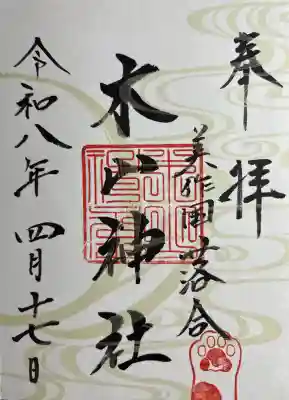 奉拝
美作国 落合
木山神社
令和八年 四月十七日